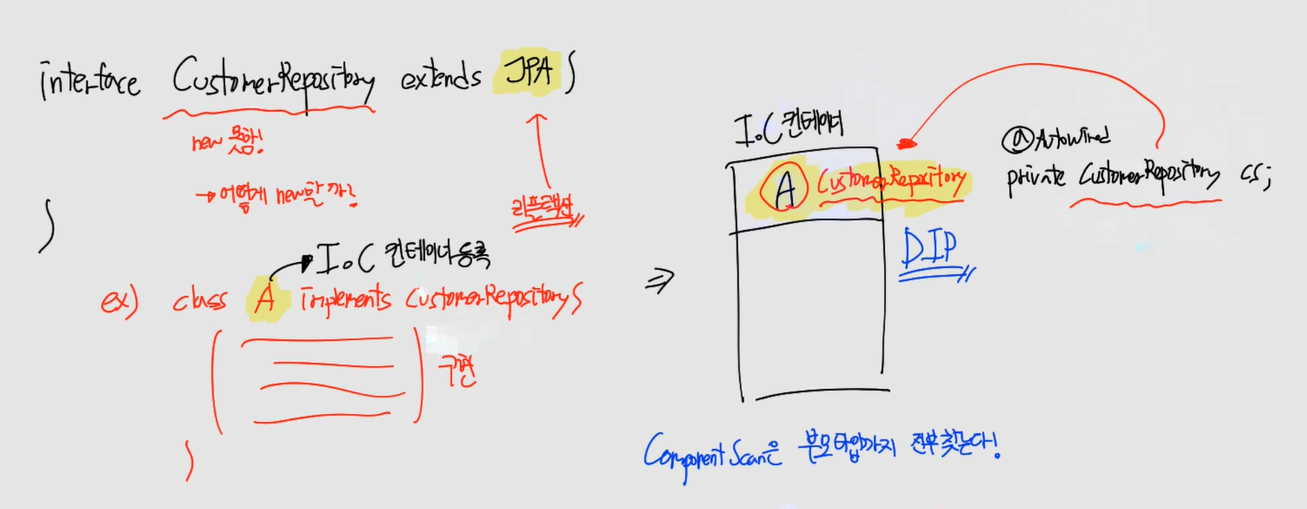 interface CustomerRepository extends JPA {
new 못함!
→ 어떻게 new할까?
리플렉션
}
ex) class A implements CustomerRepository {
IoC 컨테이너 등록
구현
}
⇒
IoC 컨테이너
A CustomerRepository
DIP
@Autowired
private CustomerRepository cs;
ComponentScan은 부모타입까지 전부 찾는다!